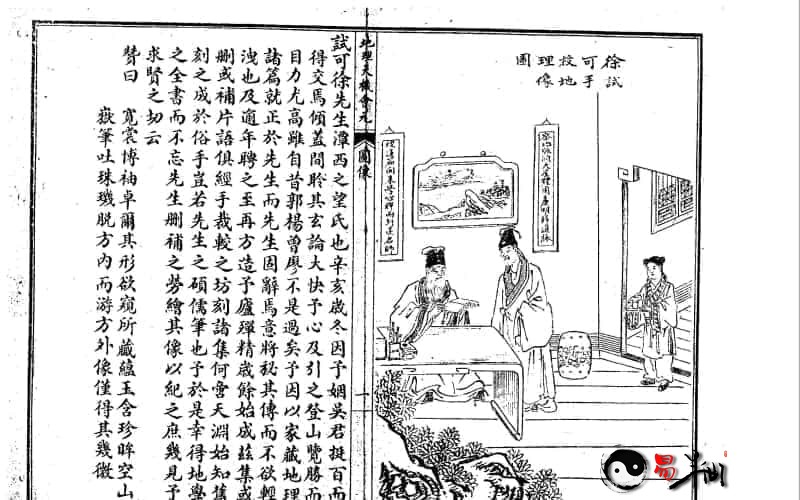 徐試
可手
授地
理像
圖
地理天機會元
圖像
試可徐先生潭西之望氏也辛亥歲冬因予姻吳君挺百而
得交焉傾蓋間聆其玄論大快予心及引之登山覽勝而
目力尤高雖自昔郭楊曾廖不是過矣予因以家藏地理
諸篇就正於先生而先生固辭焉意將秘其傳而不欲輕
洩也及適年聘之至再方造予廬殫精歲餘始成茲集或
刪或補片語俱經手裁較之坊刻諸集何啻天淵始知舊
刻之成於俗手豈若先生之碩儒筆也予於是幸得地學
之全書而不忘先生刪補之勞繪其像以紀之庶幾見予
求賢之切云
贊曰
寬裳博袖卓爾其形欲窺所藏蘊玉含珍眸空山
嶽筆吐珠璣脫方內而游方外像僅得其幾微
易半仙